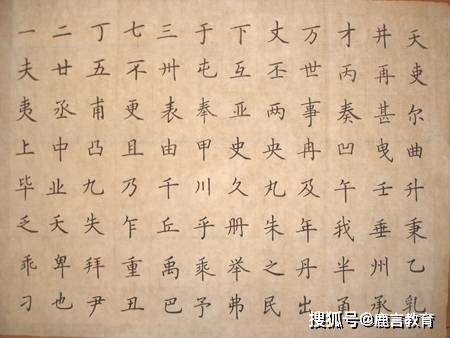 一二丁七三于下丈万才井天
夫廿五不卅屯互丕世丙再吏
夷丞甫更表奉亚两事奏甚尔
上中凸且由甲史央冉凹曳曲
毕业九乃千川久丸及午壬升
乏夭失乍丘乎册朱年我垂秉
乖卑拜重禹乘举之丹半州乙
刁也尹丑巴予弗民出承乳
搜狐号@鹿言教育